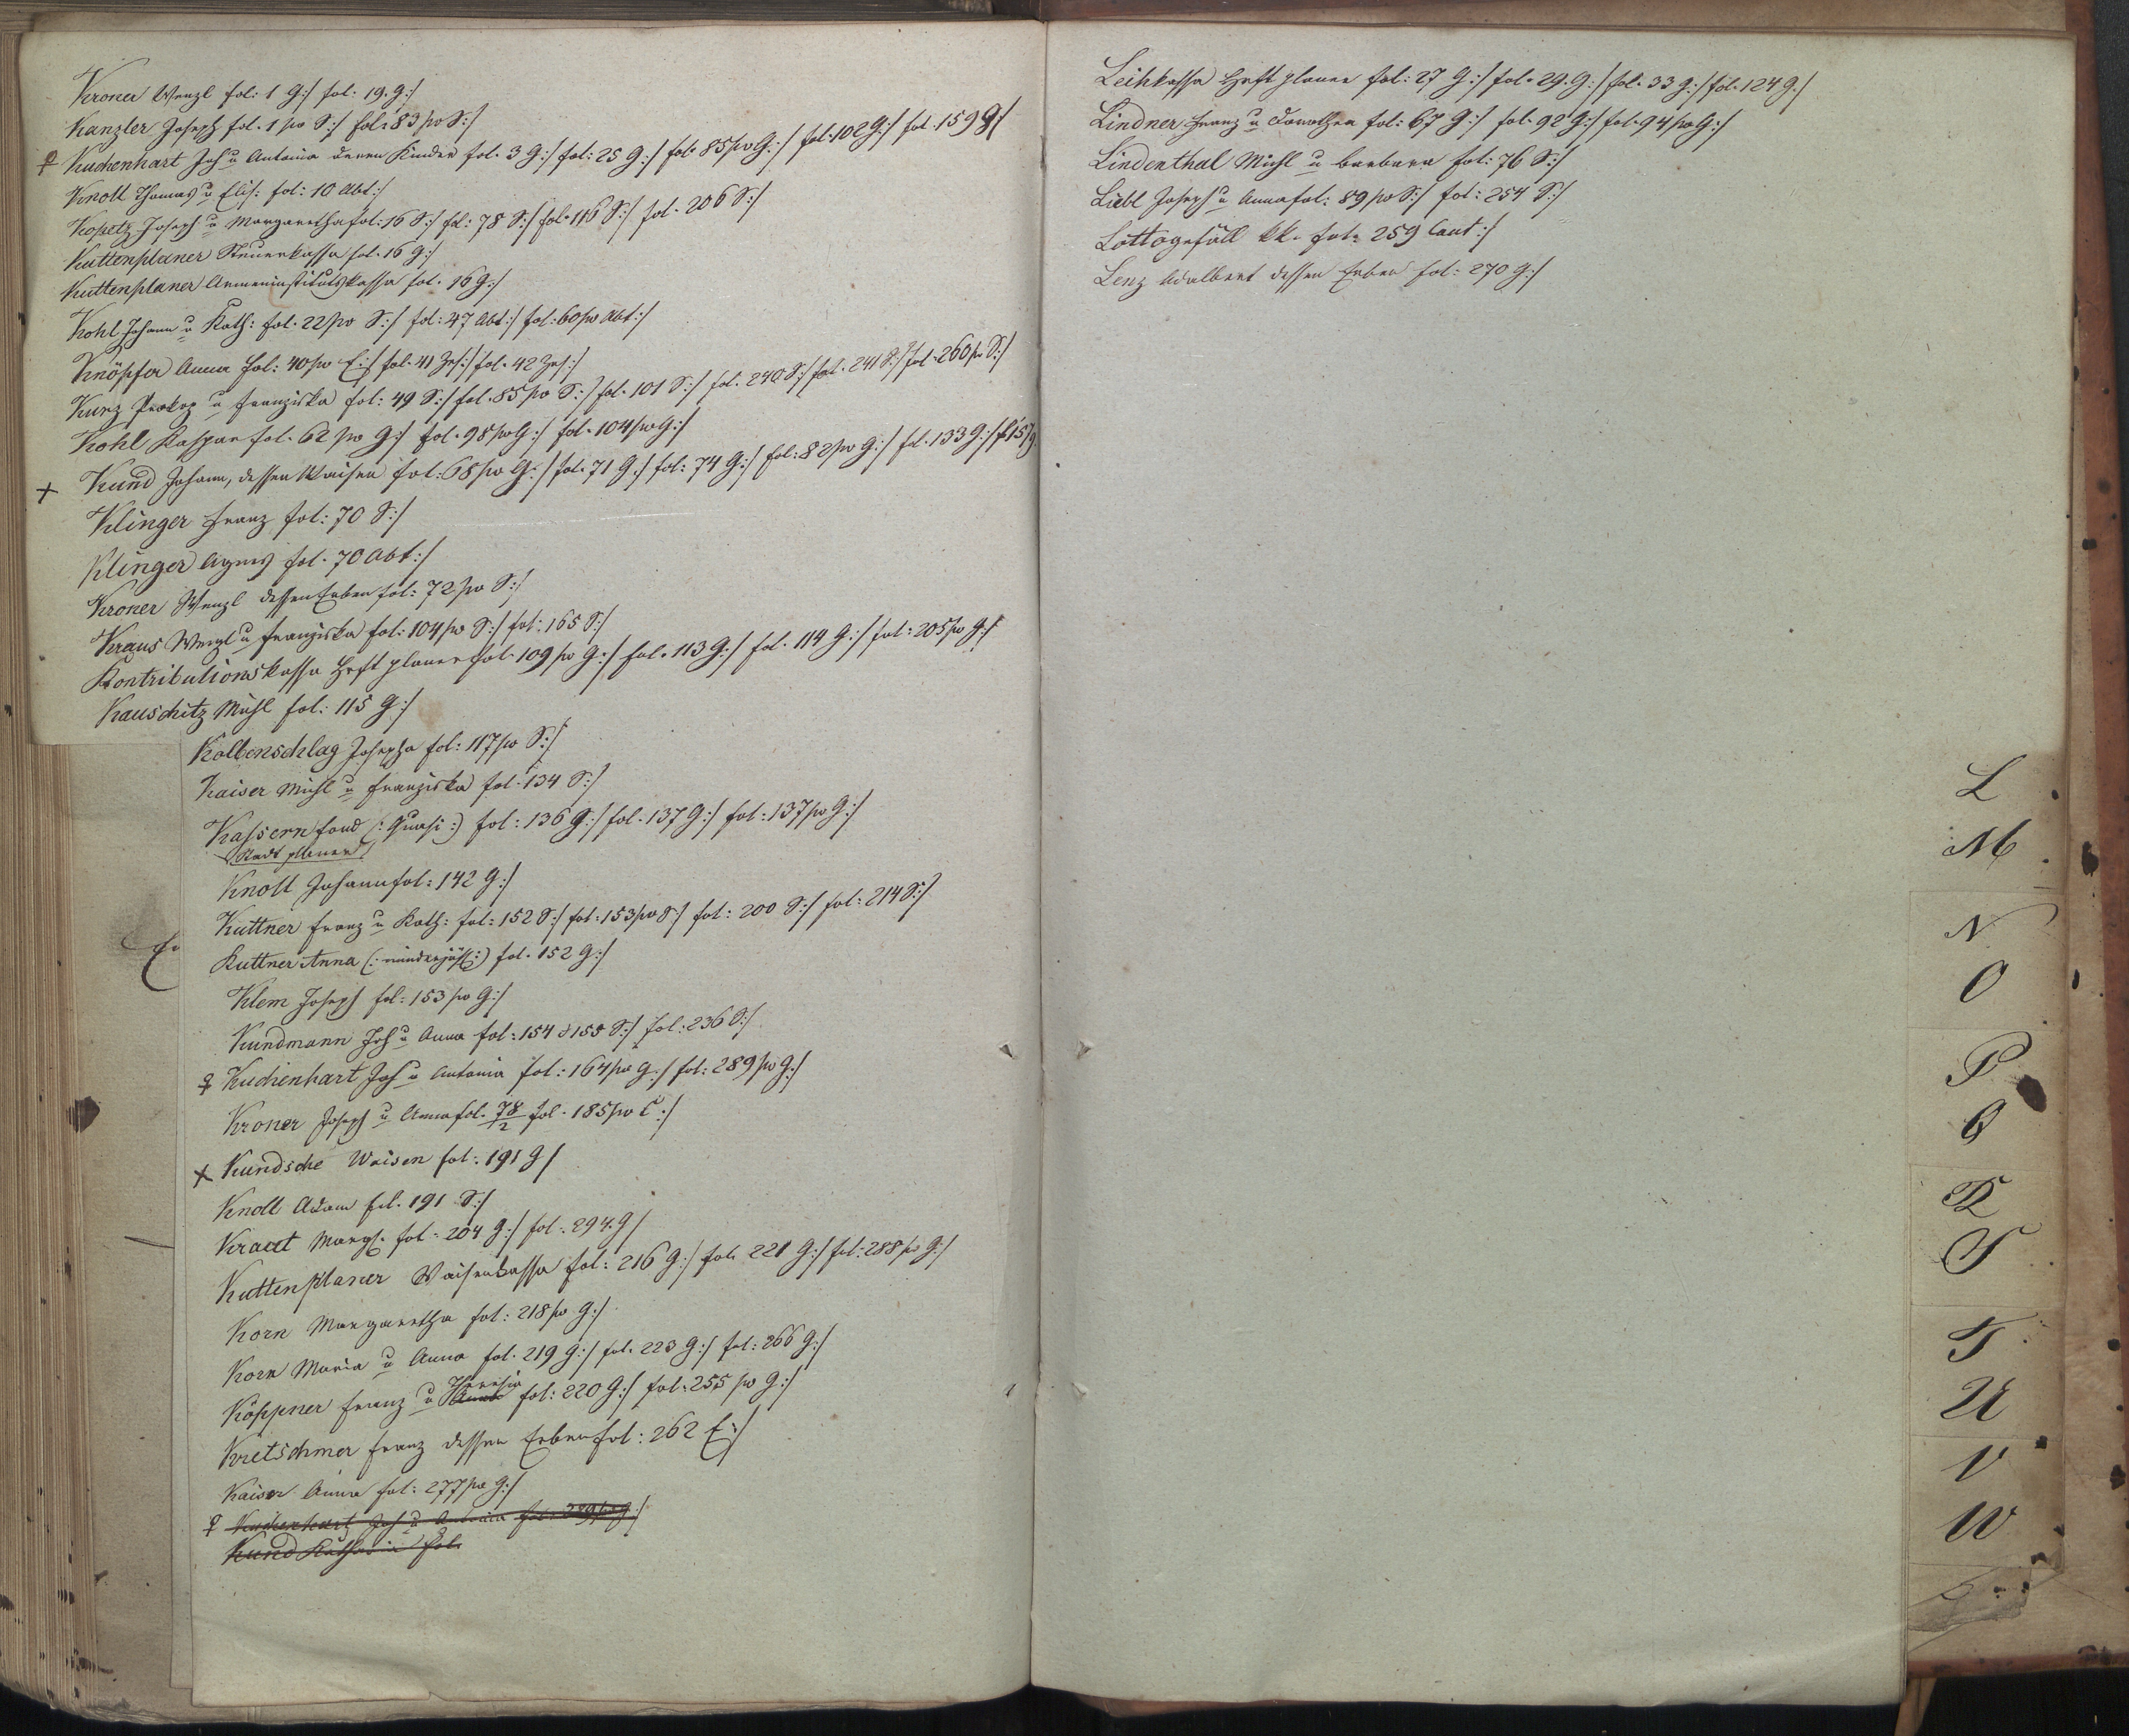 Kroner Wenzl fol: 1 G:/ fol: 19. G:/
Kanzler Joseph fol. 1 po S:/ fol: 83 po S:/
Kuchenhart Joh u Antonia deren Kinder fol. 3 G:/ fol: 25 G:/ fol: 85/po G:/ fol: 102 G:/ fol. 159 G:/
Knoll Thomas u Elis: fol: 10 Abt:/
Kopetz Joseph u Margaretha fol: 16 S:/ fol: 78 S:/ fol. 116 S:/ fol. 206 S:/
Kuttenplaner Steuerkassa fol. 16 G:/
Kuttenplaner Armeninstitutskassa fol. 16 G:/
Kohl Johann u Kath: fol. 22/po S:/ fol: 47 Abt:/ fol: 60/po Abt:/
Knöpfer Anna fol: 40/po E:/ fol. 41 Zes:/ fol. 42 Zes:/
Kunz Prokop u Franziska fol: 49 S:/ fol. 85 po S:/ fol. 101 S:/ fol. 240 S:/ fol. 241 S:/ fol. 260 po S:/
Kohl Kaspar fol. 62 po G:/ fol. 98 po G:/ fol. 104/po G:/
+ Kund Johann, dessen Waisen fol: 68 po G:/ fol. 71 G:/ fol: 74 G:/ fol: 82/po G:/ fol. 133 G:/ f 157 g
Klinger Franz fol: 70 S:/
Klinger Agnes fol. 70 Abt:/
Kroner Wenzl dessen Erben fol: 72 po S:/
Kraus Wenzl u Franziska fol: 104/po S:/ fol: 165 S:/
Kontributionskassa Hsft planer fol. 109 po G:/ fol. 113 G:/ fol. 114 G:/ fol: 205/po G:/
Kauschitz Michl fol: 115 G:/
Kolbenschlag Josepha fol: 117 po S:/
Kaiser Michl u Franziska fol. 134 S:/
Kassern fond (: Quasi :) fol: 136 G:/ fol. 137 G:/ fol: 137 po G:/
Stadt planer
Knoll Johann fol: 142 G:/
Kuttner Franz u Kath: fol: 152 S:/ fol: 153/po S:/ fol: 200 S:/ fol: 214 S:/
Kuttner Anna (: minderjähr :) fol. 152 G:/
Klem Joseph fol: 153 po G:/
Kundmann Joh u Anna fol: 154 & 155 S:/ fol: 236 S:/
Kuchenhart Joh u Antonia fol: 164/po G:/ fol: 289/po G:/
Kroner Joseph u Anna fol. 78/2 fol. 185/po C:/
+ Kundsche Waisen fol: 191 G/
Knoll Adam fol. 191 S:/
Kraut Margh. fol. 204 G:/ fol. 294. G/
Kuttenplaner Waisenkassa fol: 216 G:/ fol. 221 G:/ fol: 288 po G:/
Korn Margaretha fol: 218 po G:/
Korn Maria u Anna fol. 219 G:/ fol. 223 G:/ fol: 266 G:/
Köppner Franz u Anna Theresia fol: 220 G:/ fol: 255 po G:/
Kretschmer Franz dessen Erben fol: 262 E:/
Kaiser Anna fol: 277/po G:/
Kuchenhart Joh u Antonia fol: 289/po G:/
Kund Katharina fol.
Leihkassa Hsft planer fol: 27 G:/ fol. 29. G:/ fol. 33 G:/ fol. 124 G./
Lindner Franz u Dorothea fol: 67 G:/ fol. 92 G:/ fol. 94/po G:/
Lindenthal Michl u Barbara fol: 76 S:/
Liebl Joseph u Anna fol: 89 po S:/ fol: 254 S:/
Lottogefäll kk. fol: 259 Caut:/
Lenz Adalbert dessen Erben fol: 270 G:/
L
M
N
O
P
Q
R
S
T
U
V
W